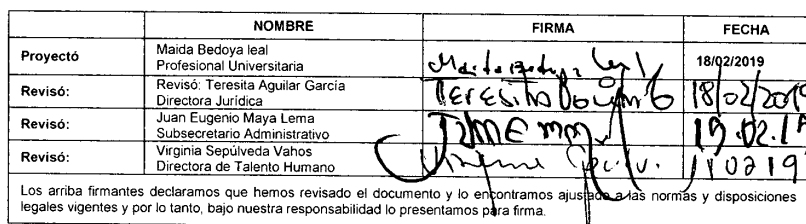 NOMBRE FIRMA FECHA
Proyectó Maida Bedoya leal
Profesional Universitaria 18/02/2019
Revisó: Revisó: Teresita Aguilar García
Directora Jurídica Teresita 18/02/2019
Revisó: Juan Eugenio Maya Lema
Subsecretario Administrativo 19.02.19
Revisó: Virginia Sepúlveda Vahos
Directora de Talento Humano
Los arriba firmantes declaramos que hemos revisado el documento y lo encontramos ajustado a las normas y disposiciones
legales vigentes y por lo tanto, bajo nuestra responsabilidad lo presentamos para firma.